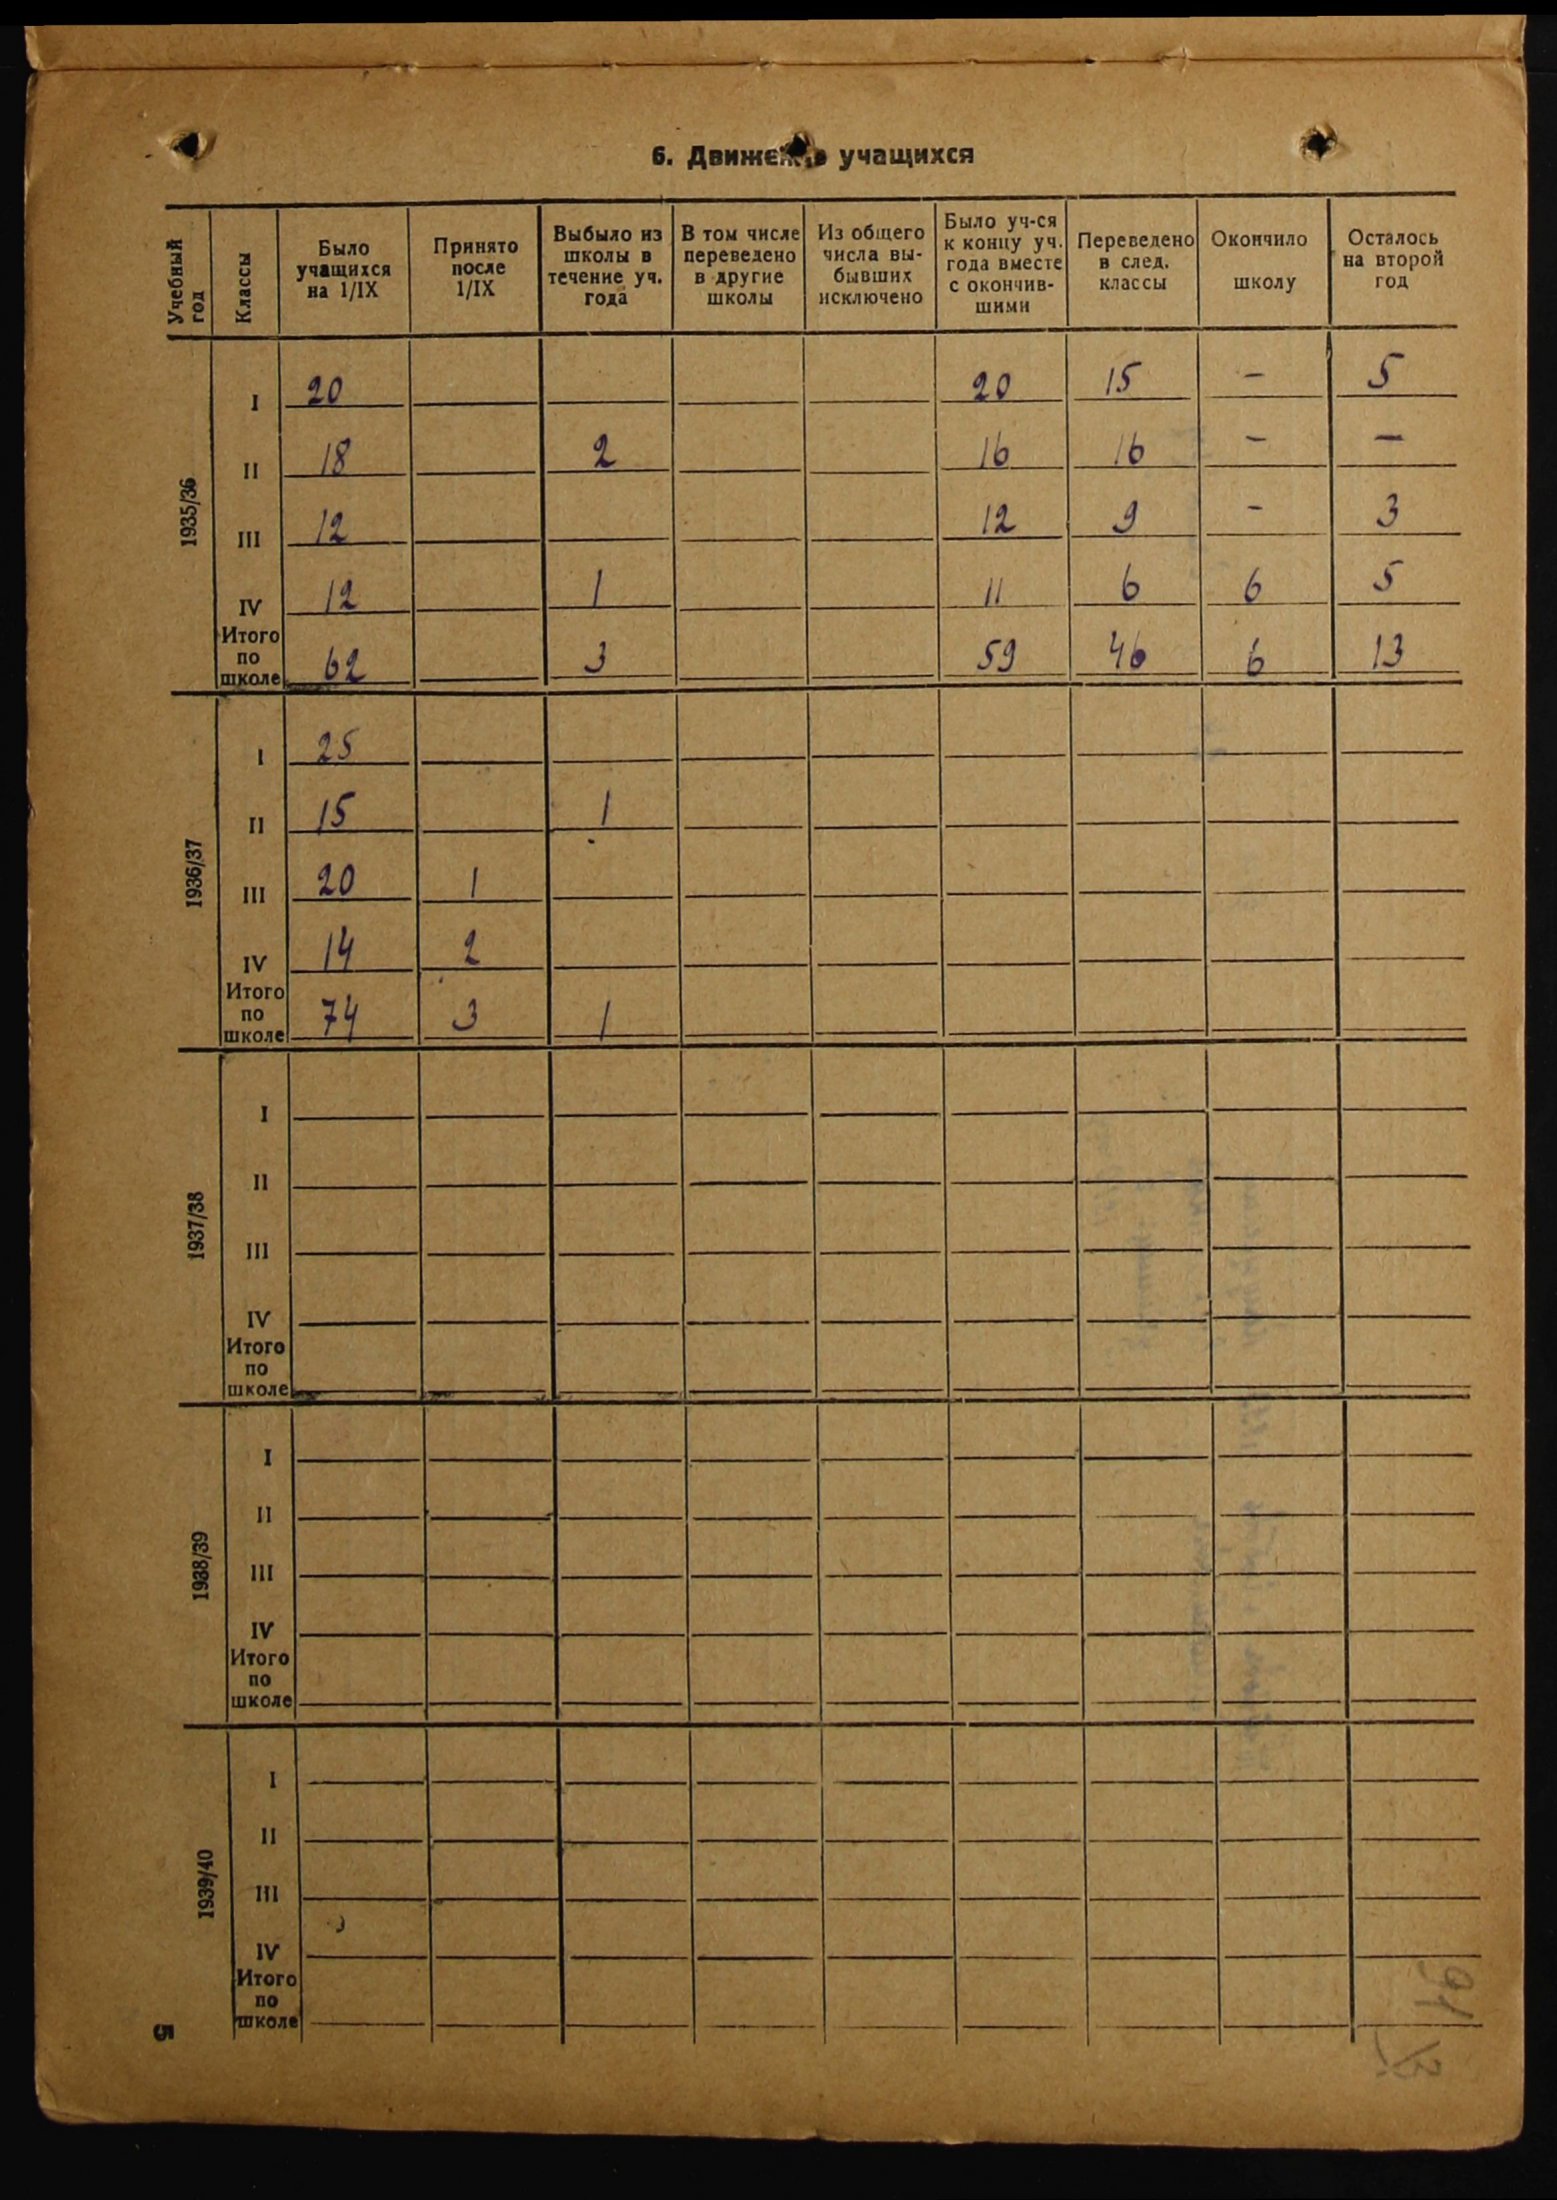 6. Движение учащихся
Учебный год | Классы | Было учащихся на 1/IX | Принято после 1/IX | Выбыло из школы в течение уч. года | В том числе переведено в другие школы | Из общего числа выбывших исключено | Было уч-ся к концу уч. года вместе с окончившими | Переведено в след. классы | Окончило школу | Осталось на второй год
1935/36
I 20 20 15 — 5
II 18 2 16 16 — —
III 12 12 9 — 3
IV 12 1 11 6 6 5
Итого по школе 62 3 59 46 6 13
1936/37
I 25
II 15 1
III 20 1
IV 14 2
Итого по школе 74 3 1
1937/38
I
II
III
IV
Итого по школе
1938/39
I
II
III
IV
Итого по школе
1939/40
I
II
III
IV
Итого по школе
5